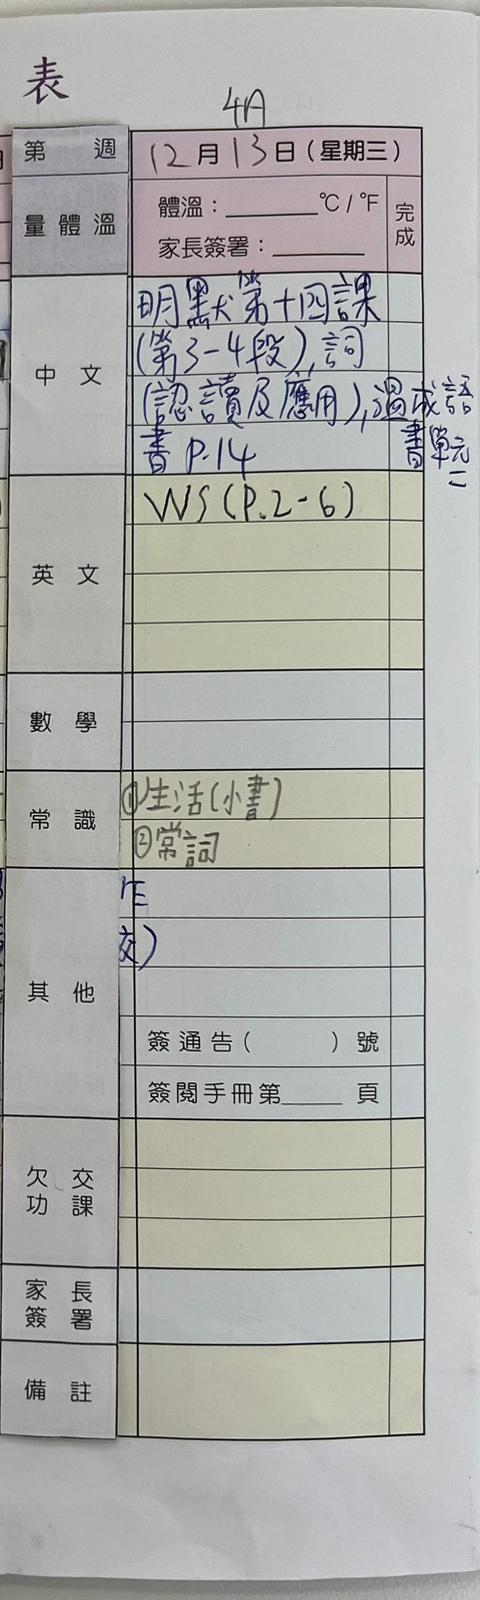 表
4A
第 週 12月13日(星期三)
量體溫 體溫:______℃/℉ 完成
家長簽署:______
中文 明默第十四課
(第3-4段),詞
(認讀及應用),溫成語
書P.14 書單元
二
英文 WS(P.2-6)
數學
常識 ①生活(小書)
②常詞
其他
交)
簽通告( )號
簽閱手冊第____頁
欠交
功課
家長
簽署
備註